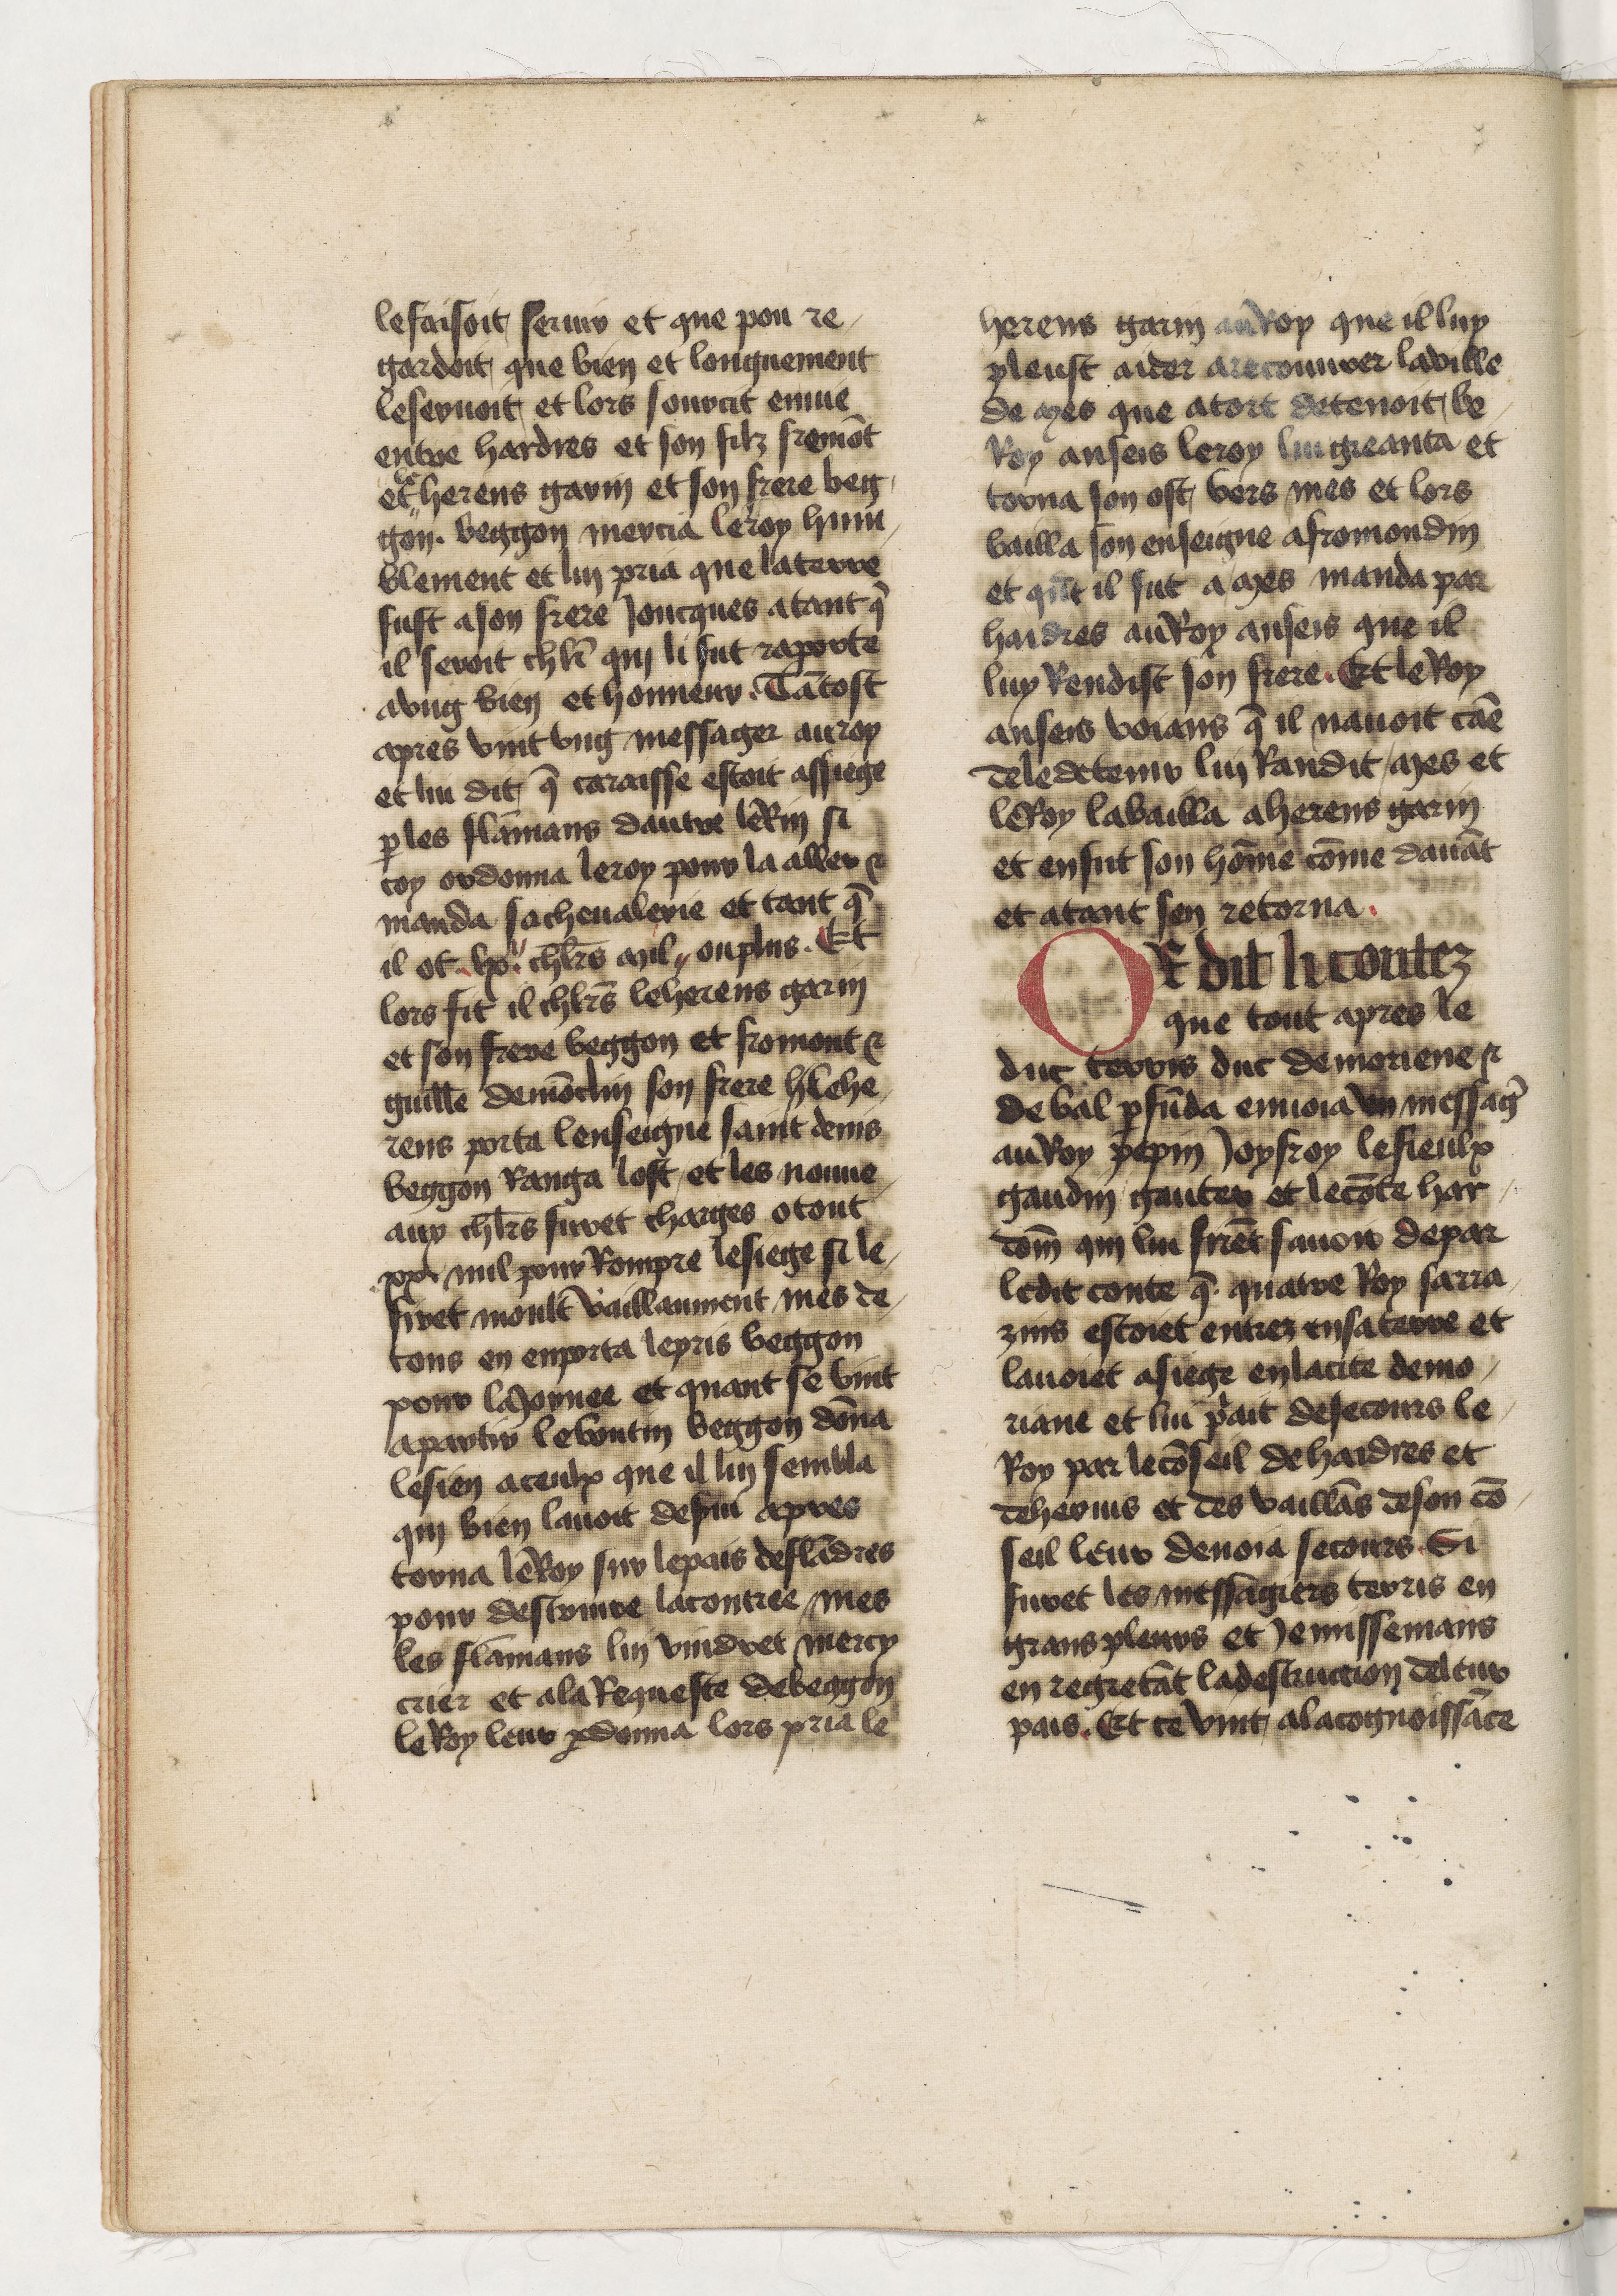 lefaisoit seruir et que pou re
gardoit que bien et longuement
leseruoit et lors sourcit enuie
entre hardres et son filz fremõt
et herens garin et son frere beg
gon. beggon mercia leroy humi
blement et lui pria que laterre
fust ason frere joucques atant q̃
il seroit chlr̃ qui li fut raporte
aung bien et honneur. Tãtost
apres vint vng messager auroy
et lui dit q̃ caraisse estoit assiege
ꝑles flãmans dautre leRin si
coy ordonna leroy pour la aller ⁊
manda sa cheualerie et tant q̃
il ot chlr̃s mil ou plus. Et
lors fit il chlr̃s leherens garin
et son frere beggon et fromont ⁊
guille demõclin son frere hlehe
rens porta lenseigne saint denis
beggon Ranga lost et les nouue
aux chlr̃s furet charges otout
xx mil pour Rompre lesiege si le
firet moult vaillanment mes de
tous en enporta lepris beggon
pour lajornee et quant se vint
apartir leboutin beggon dõna
lesien aceulx que il lui sembla
qui bien lauoit desui apres
torna leRoy sur lepais deflãdres
pour destruire lacontree mes
les flãmans lui vindret mercy
crier et ala Requeste debeggon
leRoy leur ꝑdonna lors pria le
herens garin auRoy que il luy
pleust aider arecouurer laville
de mes que atort detenoit le
Roy anseis leroy lui greanta et
torna son ost vers mes et lors
bailla son enseigne afromondin
et qũt il fut a mes manda par
hardres auRoy anseis que il
luy Rendist son frere. Et leRoy
anseis voians q̃ il nauoit cãe
deledetenir lui Randit mes et
leRoy labailla aherens garin
et enfut son hõme cõme dauãt
et atant sen retorna.
OR dit li contez
que tout apres le
duc terris duc demoriene ⁊
de val ꝑfũda enuoia vn messag̃
auRoy pepin joyfroy lesieulx
gaudin gauter et lecõte har
dom̃ qui lui firẽt sauoir depar
ledit conte q̃ quatre Roy sarra
zins estoiet entrez ensaterre et
lauoiet asiege enlacite demo
riane et lui pr̃ait desecours le
Roy par lecõseil dehardres et
dehernis et des vaillãs deson cõ
seil leur denoia secours. Si
furet les messagiers terris en
grans pleurs et jemissemans
en regretãt ladestruction deleur
pais. Et ce vint alacognoissãce